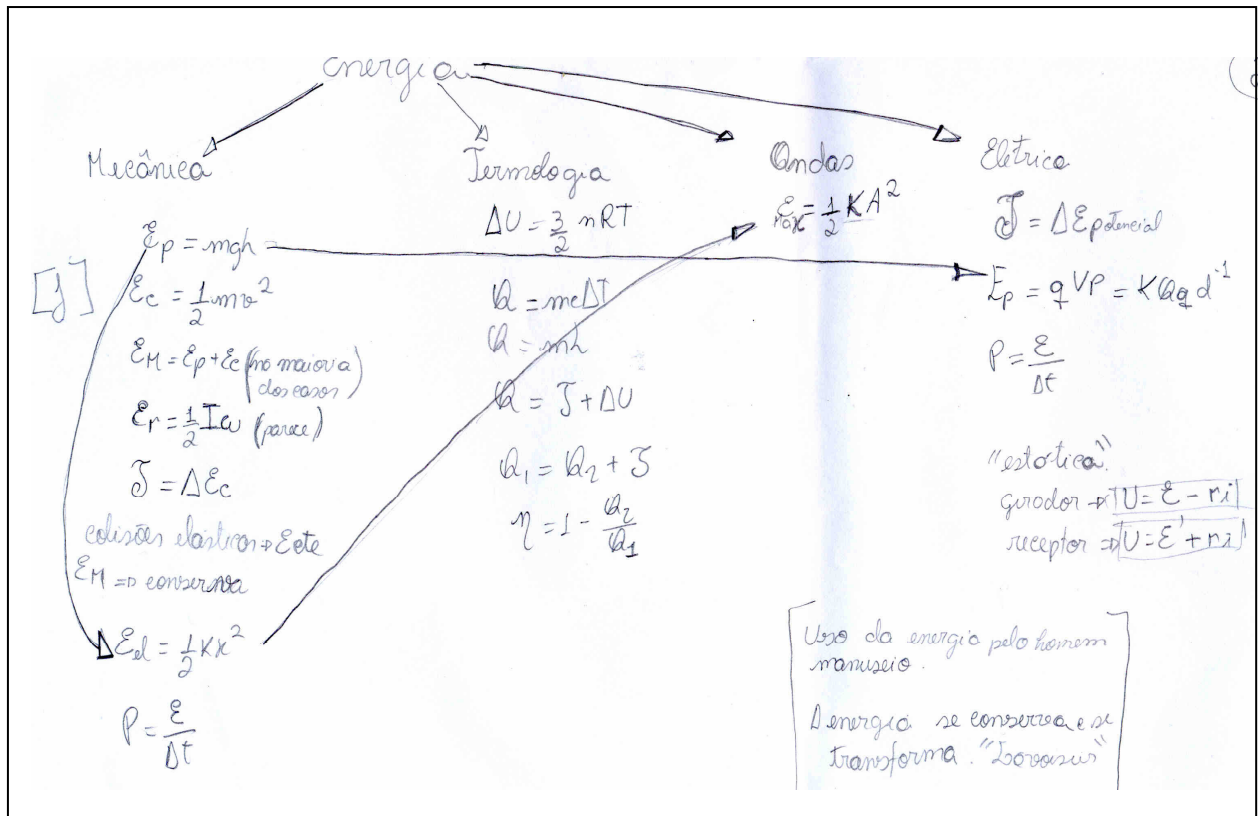 energia
Mecânica
[J]
Ep = mgh
Ec = 1/2 mv²
EM = Ep + Ec (na maioria dos casos)
Er = 1/2 Iω (parece)
τ = ΔEc
colisões elásticas ⇒ Ecte
EM ⇒ conserva
Eel = 1/2 Kx²
P = E/Δt
Termologia
ΔU = 3/2 nRT
Q = mcΔT
Q = mL
Q = τ + ΔU
Q1 = Q2 + τ
η = 1 - Q2/Q1
Ondas
Emáx = 1/2 KA²
Elétrica
τ = ΔEpotencial
Ep = qVP = KQq d⁻¹
P = E/Δt
"estática"
gerador ⇒ U = E - ri
receptor ⇒ U = E' + ri
Uso da energia pelo homem
manuseio.
A energia se conserva e se
transforma.